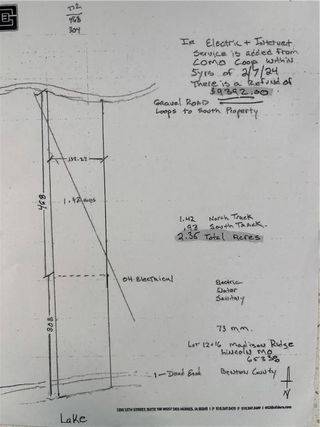 772
468
304
If Electric + Internet
Service is added from
COMO Coop within
5yrs of 2/7/24
There is a Refund of
$9392.00
Gravel ROAD
Loops to South Property
468
1.42 acres
1.42 North Track
.93 South Track
2.35 Total Acres
OH Electrical
Electric
Water
Sanitary
308
73 mm.
Lot 12+16 Madison Ridge
Lincoln MO
65338
Dead End
Benton County
N
Lake